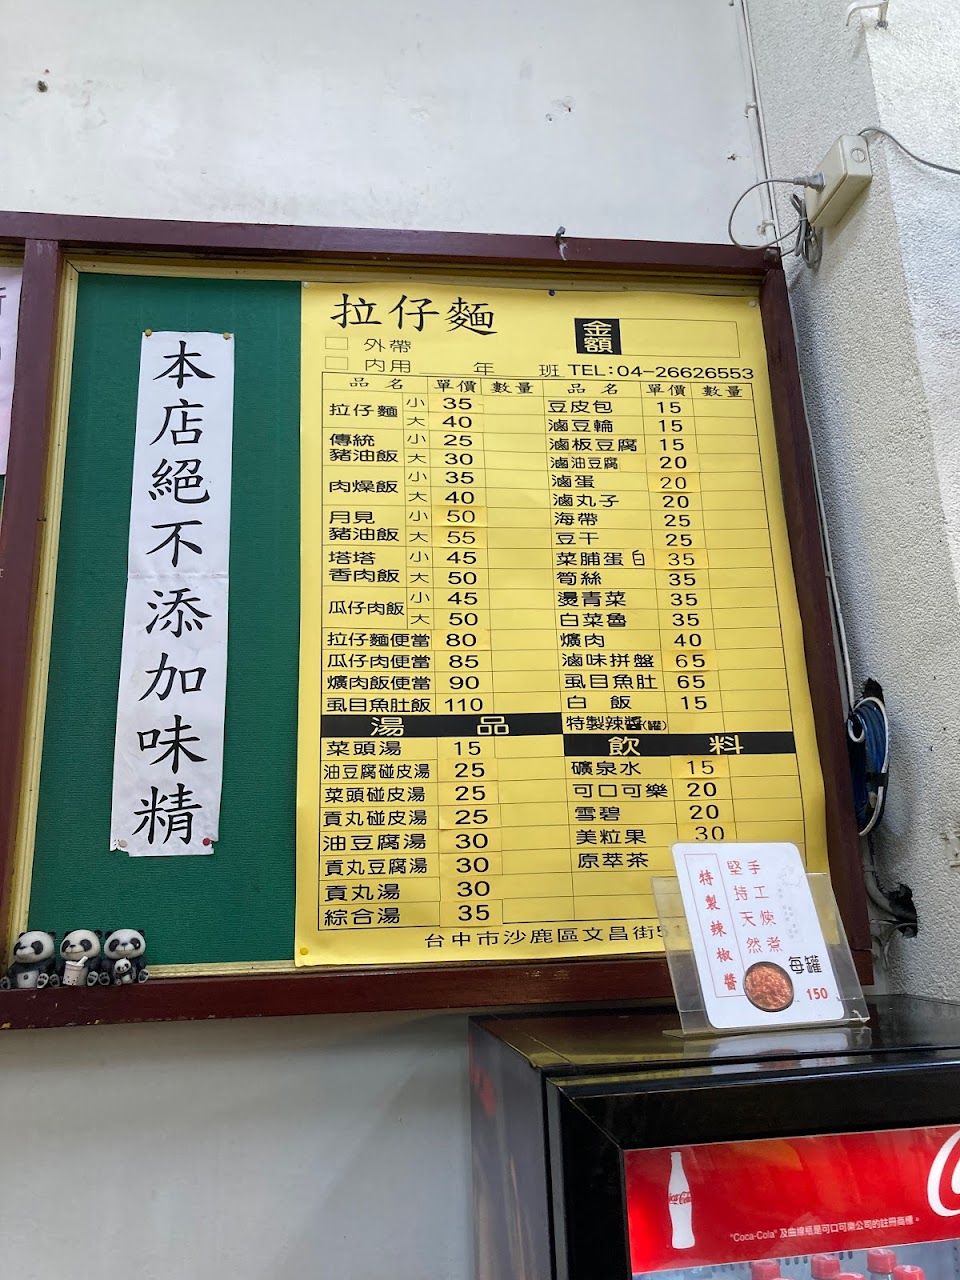 本店絕不添加味精
拉仔麵
金額
□ 外帶
□ 內用 年 班 TEL:04-26626553
品名 單價 數量 品名 單價 數量
拉仔麵 小 35
大 40
傳統豬油飯 小 25
大 30
肉燥飯 小 35
大 40
月見豬油飯 小 50
大 55
塔塔香肉飯 小 45
大 50
瓜仔肉飯 小 45
大 50
拉仔麵便當 80
瓜仔肉便當 85
爌肉飯便當 90
虱目魚肚飯 110
湯品
菜頭湯 15
油豆腐碰皮湯 25
菜頭碰皮湯 25
貢丸碰皮湯 25
油豆腐湯 30
貢丸豆腐湯 30
貢丸湯 30
綜合湯 35
豆皮包 15
滷豆輪 15
滷板豆腐 15
滷油豆腐 20
滷蛋 20
滷丸子 20
海帶 25
豆干 25
菜脯蛋 白 35
筍絲 35
燙青菜 35
白菜魯 35
爌肉 40
滷味拼盤 65
虱目魚肚 65
白飯 15
特製辣醬(罐)
飲料
礦泉水 15
可口可樂 20
雪碧 20
美粒果 30
原萃茶
台中市沙鹿區文昌街5
特製辣椒醬
堅持天然
手工煉煮
每罐
150
"Coca-Cola" 及曲線瓶是可口可樂公司的註冊商標。